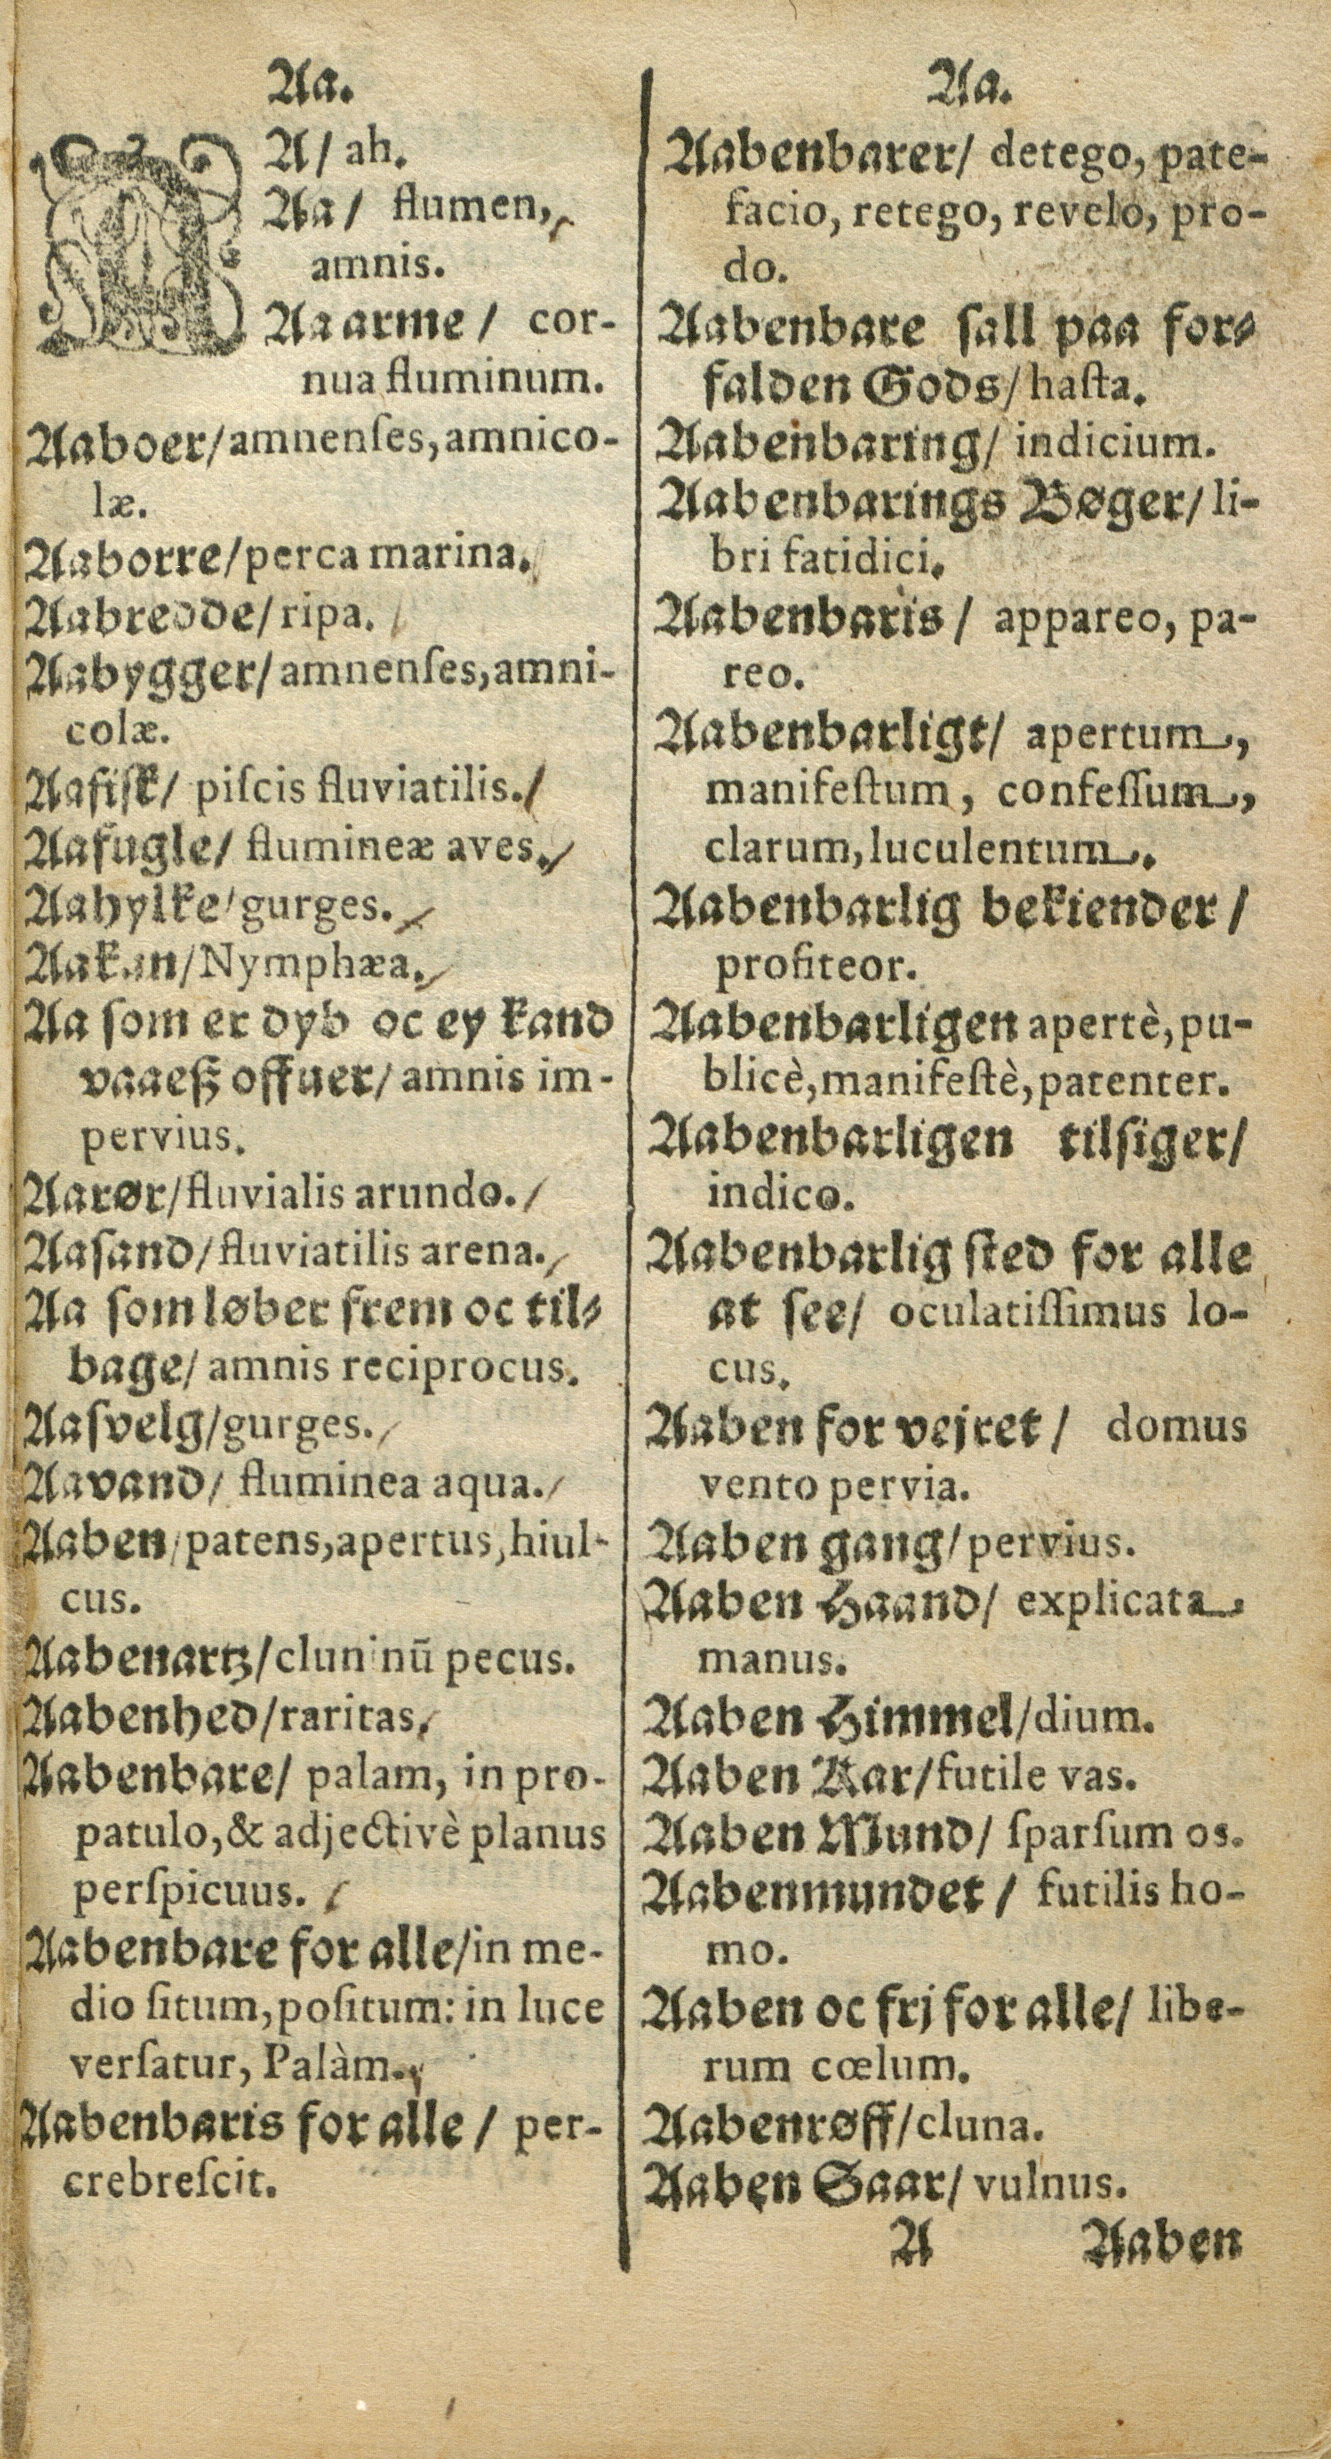 Aa.
A/ ah.
Aa/ flumen,
amnis.
Aaarme/ cor-
nua fluminum.
Aaboer/amnenſes,amnico-
læ.
Aaborre/perca marina.
Aabredde/ripa.
Aabygger/amnenſes,amni-
colæ.
Aafiſk/ piſcis fluviatilis.
Aafugle/ flumineæ aves.
Aahylke/gurges.
Aakan/Nymphæa.
Aa ſom er dyb oc ey kand
vaaeß offuer/ amnis im-
pervius.
Aarør/fluvialis arundo.
Aaſand/fluviatilis arena.
Aa ſom løber frem oc til-
bage/ amnis reciprocus.
Aaſvelg/gurges.
Aavand/ fluminea aqua.
Aaben/patens,apertus,hiul-
cus.
Aabenartz/cluninū pecus.
Aabenhed/raritas.
Aabenbare/ palam, in pro-
patulo,& adjectivè planus
perſpicuus.
Aabenbare for alle/in me-
dio ſitum,poſitum: in luce
verſatur, Palàm.
Aabenbaris for alle/ per-
crebreſcit.
Aa.
Aabenbarer/ detego, pate-
facio, retego, revelo, pro-
do.
Aabenbare ſall paa for-
falden Gods/haſta.
Aabenbaring/ indicium.
Aabenbarings Bøger/ li-
bri fatidici.
Aabenbaris/ appareo, pa-
reo.
Aabenbarligt/ apertum,
manifeſtum, confeſſum,
clarum,luculentum.
Aabenbarlig bekiender/
profiteor.
Aabenbarligen apertè,pu-
blicè,manifeſtè,patenter.
Aabenbarligen tilſiger/
indico.
Aabenbarlig ſted for alle
at ſee/ oculatiſſimus lo-
cus.
Aaben for vejret/ domus
vento pervia.
Aaben gang/pervius.
Aaben Haand/ explicata
manus.
Aaben Himmel/dium.
Aaben Kar/futile vas.
Aaben Mund/ ſparſum os.
Aabenmundet/ futilis ho-
mo.
Aaben oc frj for alle/ libe-
rum cœlum.
Aabenrøff/cluna.
Aaben Saar/ vulnus.
A Aaben